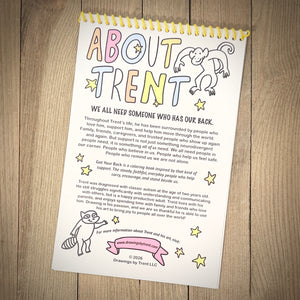 ABOUT
TRENT
WE ALL NEED SOMEONE WHO HAS OUR BACK.
Throughout Trent's life, he has been surrounded by people who
love him, support him, and help him move through the world.
Family, friends, caregivers, and trusted people who show up again
and again. But support is not just something neurodivergent
people need. It is something all of us need. We all need people in
our corner. People who believe in us. People who help us feel safe.
People who remind us we are not alone.
Got Your Back is a coloring book inspired by that kind of
support. The steady, faithful, everyday people who help
carry, encourage, and stand beside us.
Trent was diagnosed with classic autism at the age of two years old.
He still struggles significantly with understanding and communicating
with others, but is a happy and productive adult. Trent loves to
parents, and enjoys spending time with family and friends who love
him. Drawing is his passion, and we are so thankful he is able to use
his art to bring joy to people all over the world!
For more information about Trent and his art, visit:
www.drawingsbytrent.com
© 2026
Drawings by Trent LLC